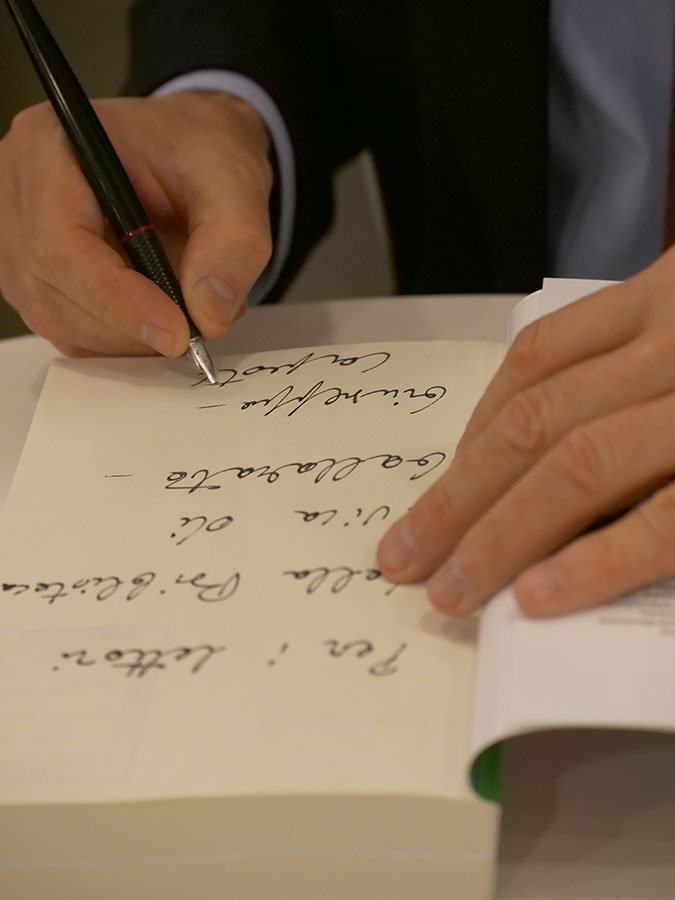 Per i lettori
della Biblioteca
Civica di
Gallarate -
Giuseppe -